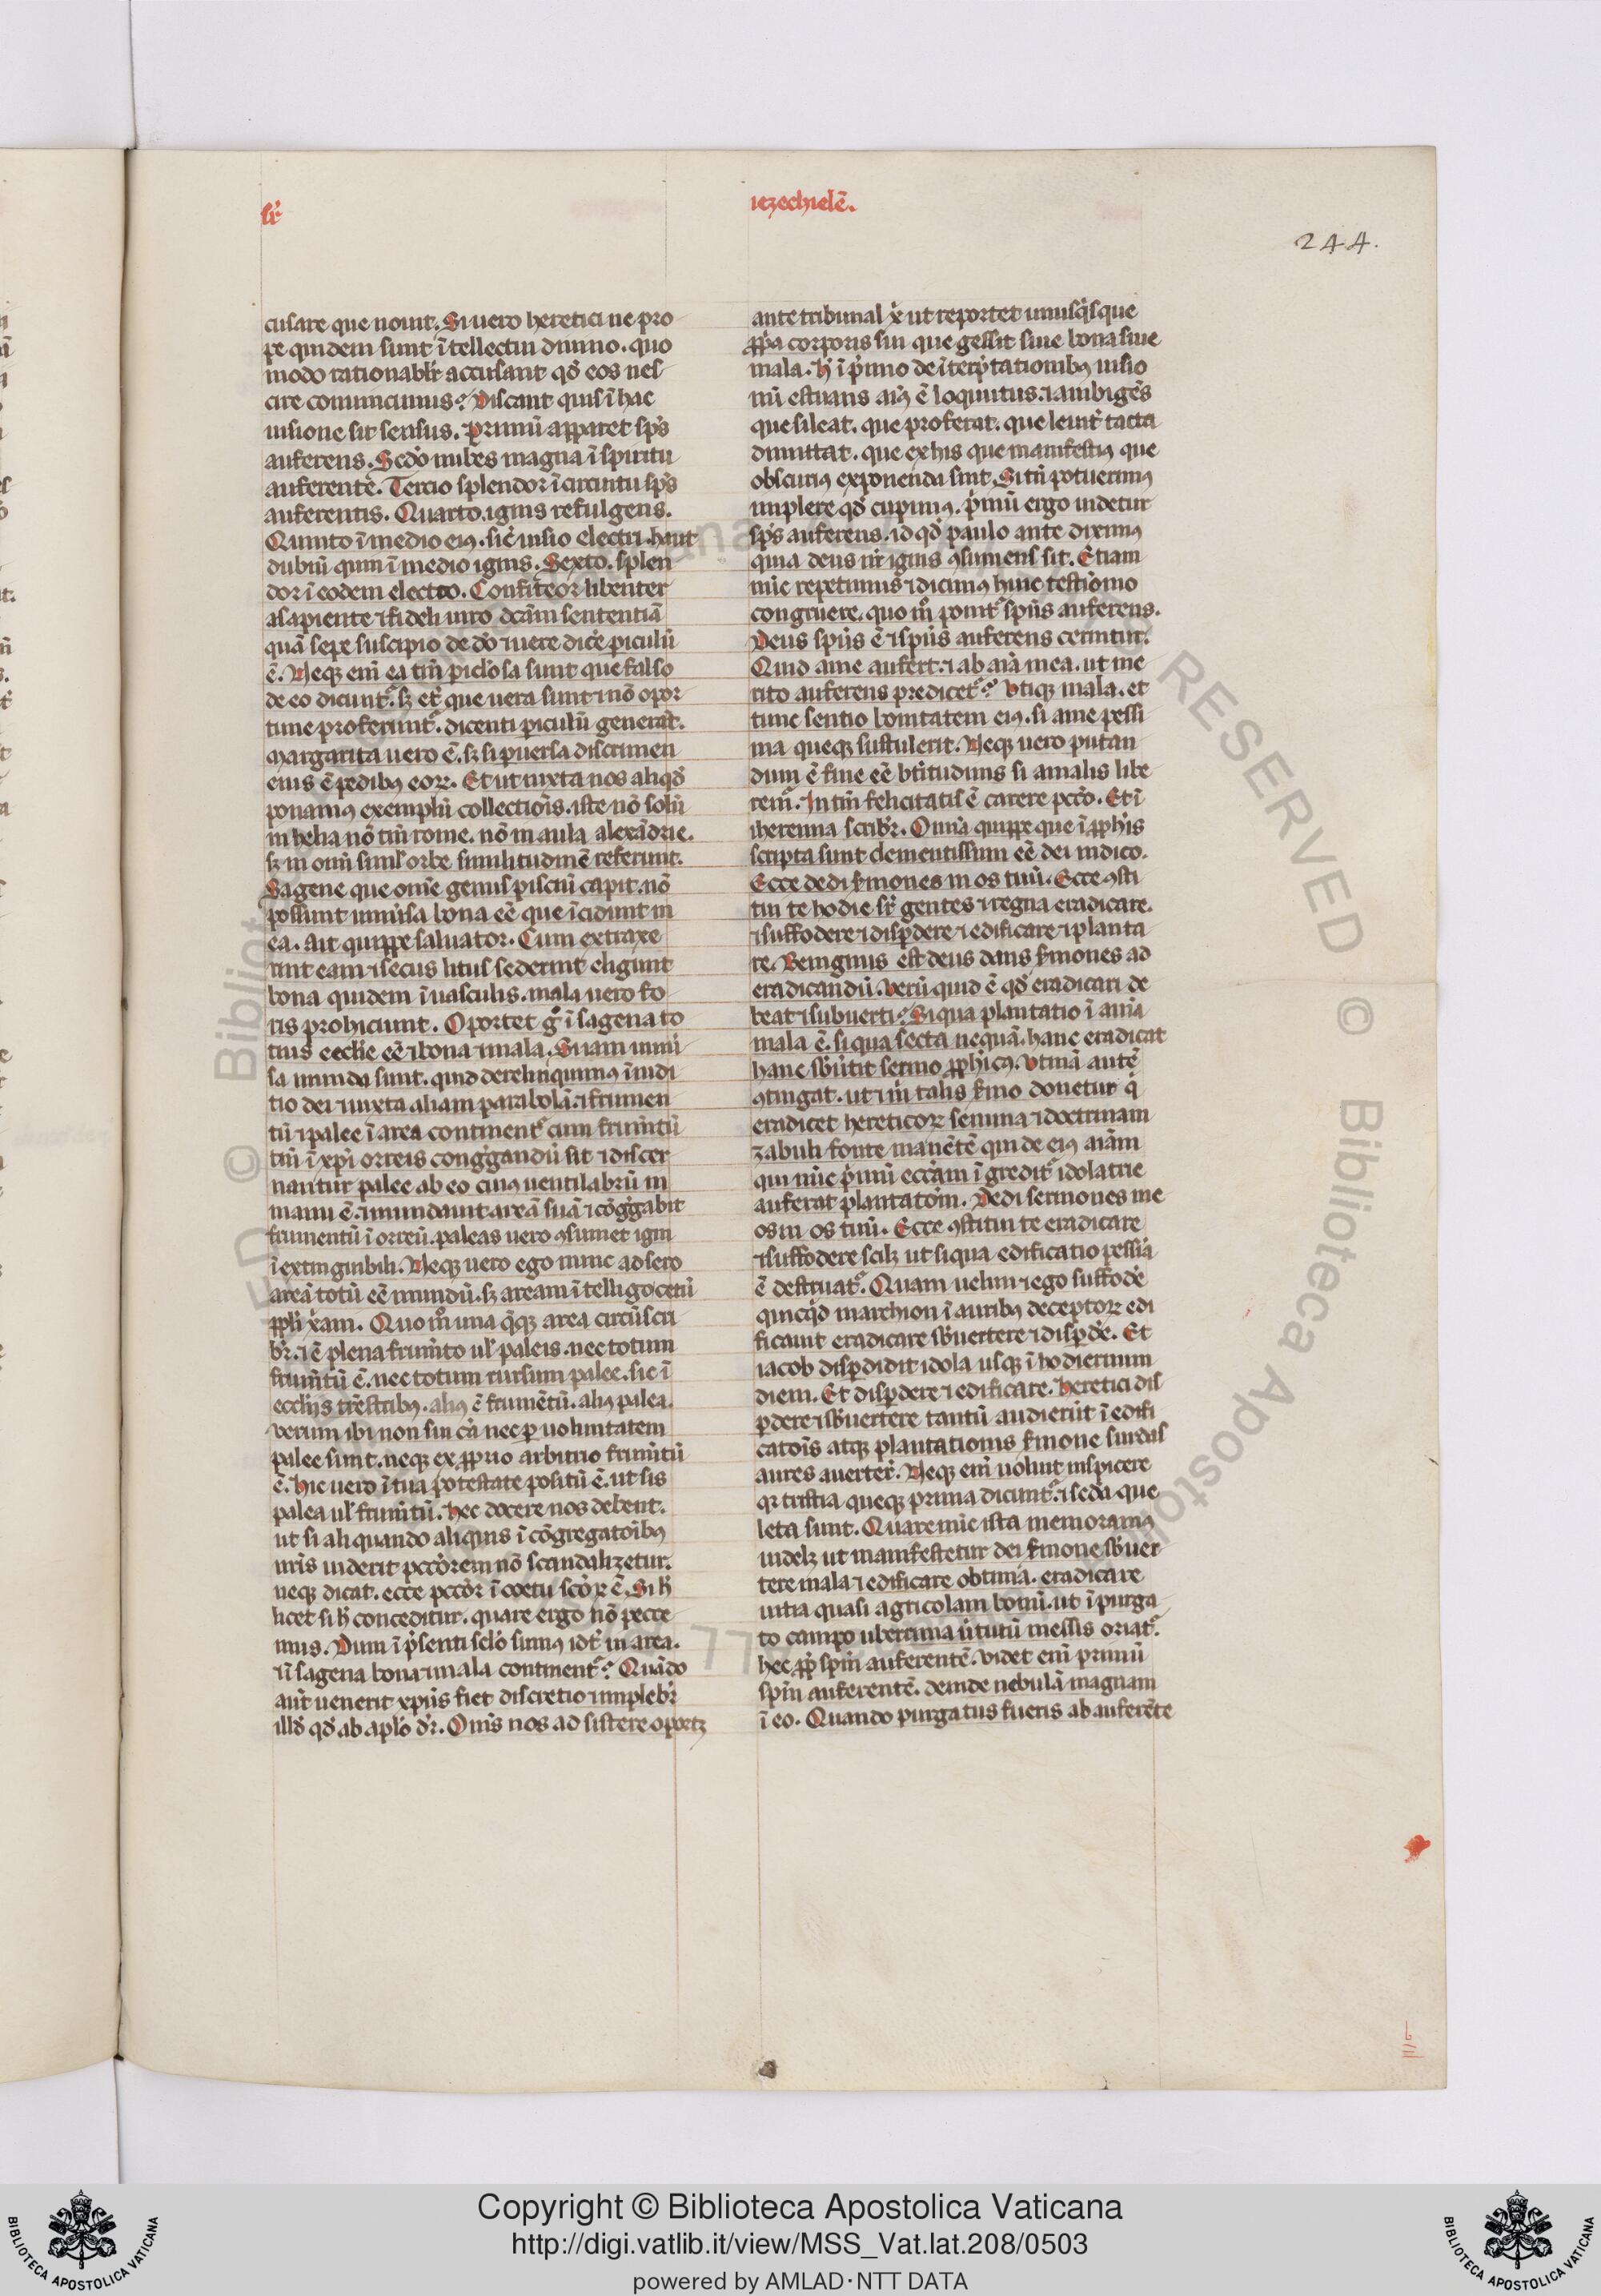 sr̄
iezechielē.
244.
cusare que nouit. Si uero heretici ne pro
pe quidem sunt ītellectui diuino. quo
modo rationabilr̄ accusant qđ eos nes
cire conuincimus? Discant quis ī hac
uisione sit sensus. Primū apparet sp̄s
auferens. Sc̄do nubes magna ī spiritu
auferente. Tercio splendor ī circuitu sp̄s
auferentis. Quarto. ignis refulgens.
Quinto ī medio eiꝰ. sic̄ uisio electri. haut
dubiū quin ī medio ignis. Sexto. splen
dor ī eodem electro. Confiteor libenter
a sapiente ⁊ fideli uiro dc̄am sententiā
quā sepe suscipio de dō ⁊ uere dicē piculū
ē. Neqꝫ enī ea tm̄ piclosa sunt que falso
de eo dicunt᷑. sꝫ et̄ que uera sunt ⁊ nō opor
tune proferunt᷑. dicenti piculū generat.
Margarita uero ē. sꝫ si puersa discrimen
eius ē pedibꝰ eoꝝ. Et ut iuxta nos aliqđ
ponamꝰ exemplū collectiois. iste nō solū
in helia nō tm̄ rome. nō in aula alexādrie.
sꝫ in om̄i siml̄ orbe similitudinē referunt.
Sagene que om̄e genus pisciū capit. nō
possunt uniūsa bona eē que īcidunt in
ea. ait quippe saluator. Cum extraxe
rint eam ⁊ secus litus sederint eligunt
bona quidem ī uasculis. mala uero fo
ris prohiciunt. Oportet gͦ ī sagena to
tius eccl̄ie eē ⁊ bona ⁊ mala. Si iam uniū
sa munda sunt. quid derelinquimꝰ ī iudi
tio dei ⁊ iuxta aliam parabolā. ⁊ frumen
tū ⁊ palee ī area continent᷑ cum frum̄tū
tm̄ ī xp̄i orreis cong̓gandū sit ⁊ discer
nantur palee ab eo cuiꝰ uentilabrū in
manu ē. ⁊ mundauit areā suā ⁊ cōg̓gabit
frumentū ī orreū. paleas uero ꝯsumet igni
ī extinguibili. Neqꝫ uero ego nunc adsero
areā totū eē mundū. sꝫ aream ītelligo cetū
ppl̄i x̄iani. Quo mͦ una q̄qꝫ area circūscri
br̄. ⁊ ē plena frum̄to ul̄ paleis. nec totum
frum̄tū ē. nec totum rursum palee. sic ī
eccl̄ijs tr̄estribꝰ. aliꝰ ē frumētū. aliꝰ palea.
Verum ibi non sui cā nec ꝑ uoluntatem
palee sunt. neqꝫ ex ꝓprio arbitrio frum̄tū
ē. Hic uero ī tua potestate positū ē. ut sis
palea ul̄ frum̄tū. Hec docere nos debent.
ut si aliquando aliquis ī cōgregatōibꝰ
nr̄is uiderit pccōrem nō scandalizetur.
neqꝫ dicat. ecce pccōr ī coetu scōꝝ ē. Si h̄
licet si h̄ conceditur. quare ergo nō pecce
mus. Dum ī p̄senti sclō sumꝰ id ē in area.
⁊ ī sagena bona ⁊ mala continent᷑? Quādo
aūt uenerit xp̄us fiet discretio ⁊ implebr̄
illđ qđ ab aplō dr̄. Om̄is nos adsistere oportꝫ
ante tribunal x̄i ut reportet unusq̓sque
ꝓp̄a corporis sui que gessit siue bona siue
mala. H̄ ī p̓mo de īterp̄tationibꝰ uisio
nū estuans aiꝰ ē loquutus. ⁊ ambigēs
que sileat. que proferat. que leuit̄ tacta
dimittat. que ex his que manifestiꝰ que
obscuriꝰ exponenda sint. Si tn̄ potuerimꝰ
implere qđ cupimꝰ. p̓mū ergo uidetur
sp̄s auferens. id qđ paulo ante diximꝰ
quia deus nr̄ ignis ꝯsumens sit. Etiam
nūc repetimus ⁊ dicimꝰ huic testiōnio
congruere. quo mͦ ponit᷑ spūs auferens.
Deus spūs ē ⁊ spūs auferens cernitur.
Quid a me aufert. ⁊ ab aīa mea. ut me
rito auferens predicet᷑? Vtiqꝫ mala. et
tunc sentio bonitatem eiꝰ. si a me pessi
ma queqꝫ sustulerit. Neqꝫ uero putan
dum ē fine eē bt̄itudinis si a malis libe
rem᷑. Initm̄ felicitatis ē carere pccō. Et ī
iheremia scribr̄. Om̄ia quippe que ī ꝓph̄is
scripta sunt clementissimum eē dei indico.
Ecce dedi s̄mones in os tuū. Ecce ꝯsti
tui te hodie sr̄ gentes ⁊ regna eradicare.
⁊ suffodere ⁊ disꝑdere ⁊ edificare ⁊ planta
re. Benignus est deus dans s̄mones ad
eradicandū. Verū quid ē qđ eradicari de
beat ⁊ subuerti? Si qua plantatio ī aīa
mala ē. si qua secta nequā. hanc eradicat
hanc sb̄uertit sermo ꝓph̄icꝰ. Vtinā autē
ꝯtingat. ut ⁊ m̓ talis s̄mo donetur q̓
eradicet hereticoꝝ semina ⁊ doctrinam
zabuli fonte manētē qui de eiꝰ aīam
qui nūc p̓mū eccl̄am īgredit᷑ idolatrie
auferat plantatōm. Dedi sermones me
os in os tuū. Ecce ꝯstitui te eradicare
⁊ suffodere scilꝫ ut si qua edificatio pessīa
ē destruat᷑. Quam uelim ⁊ ego suffodē
quicq̓d marchion ī auribꝰ deceptoꝝ edi
ficauit eradicare sb̄uertere ⁊ disꝑdē. Et
iacob disꝑdidit idola usqꝫ ī hodiernum
diem. Et disꝑdere ⁊ edificare. Heretici dis
ꝑdere ⁊ sb̄uertere tantū audierūt ī edifi
catōis atqꝫ plantationis s̄mone surdas
aures auertēt. Neqꝫ enī uolunt inspicere
qꝛ tristia queqꝫ prima dicunt᷑. ⁊ sc̄da que
leta sunt. Quare nūc ista memoramꝰ
uidelꝫ ut manifestetur dei s̄mone sb̄uer
tere mala ⁊ edificare obtima. eradicare
uitia quasi agricolam bonū. ut ī purga
to campo uberrima ūtutū messis oriat᷑.
hec ꝓpt̄ spm̄ auferentē. Videt enī primū
spm̄ auferentē. deinde nebulā magnam
ī eo. Quando purgatus fueris ab auferēte
© Biblioteca Apostolica Vaticana ALL RIGHTS RESERVED
Copyright © Biblioteca Apostolica Vaticana
http://digi.vatlib.it/view/MSS_Vat.lat.208/0503
powered by AMLAD·NTT DATA
BIBLIOTECA APOSTOLICA VATICANA
BIBLIOTECA APOSTOLICA VATICANA